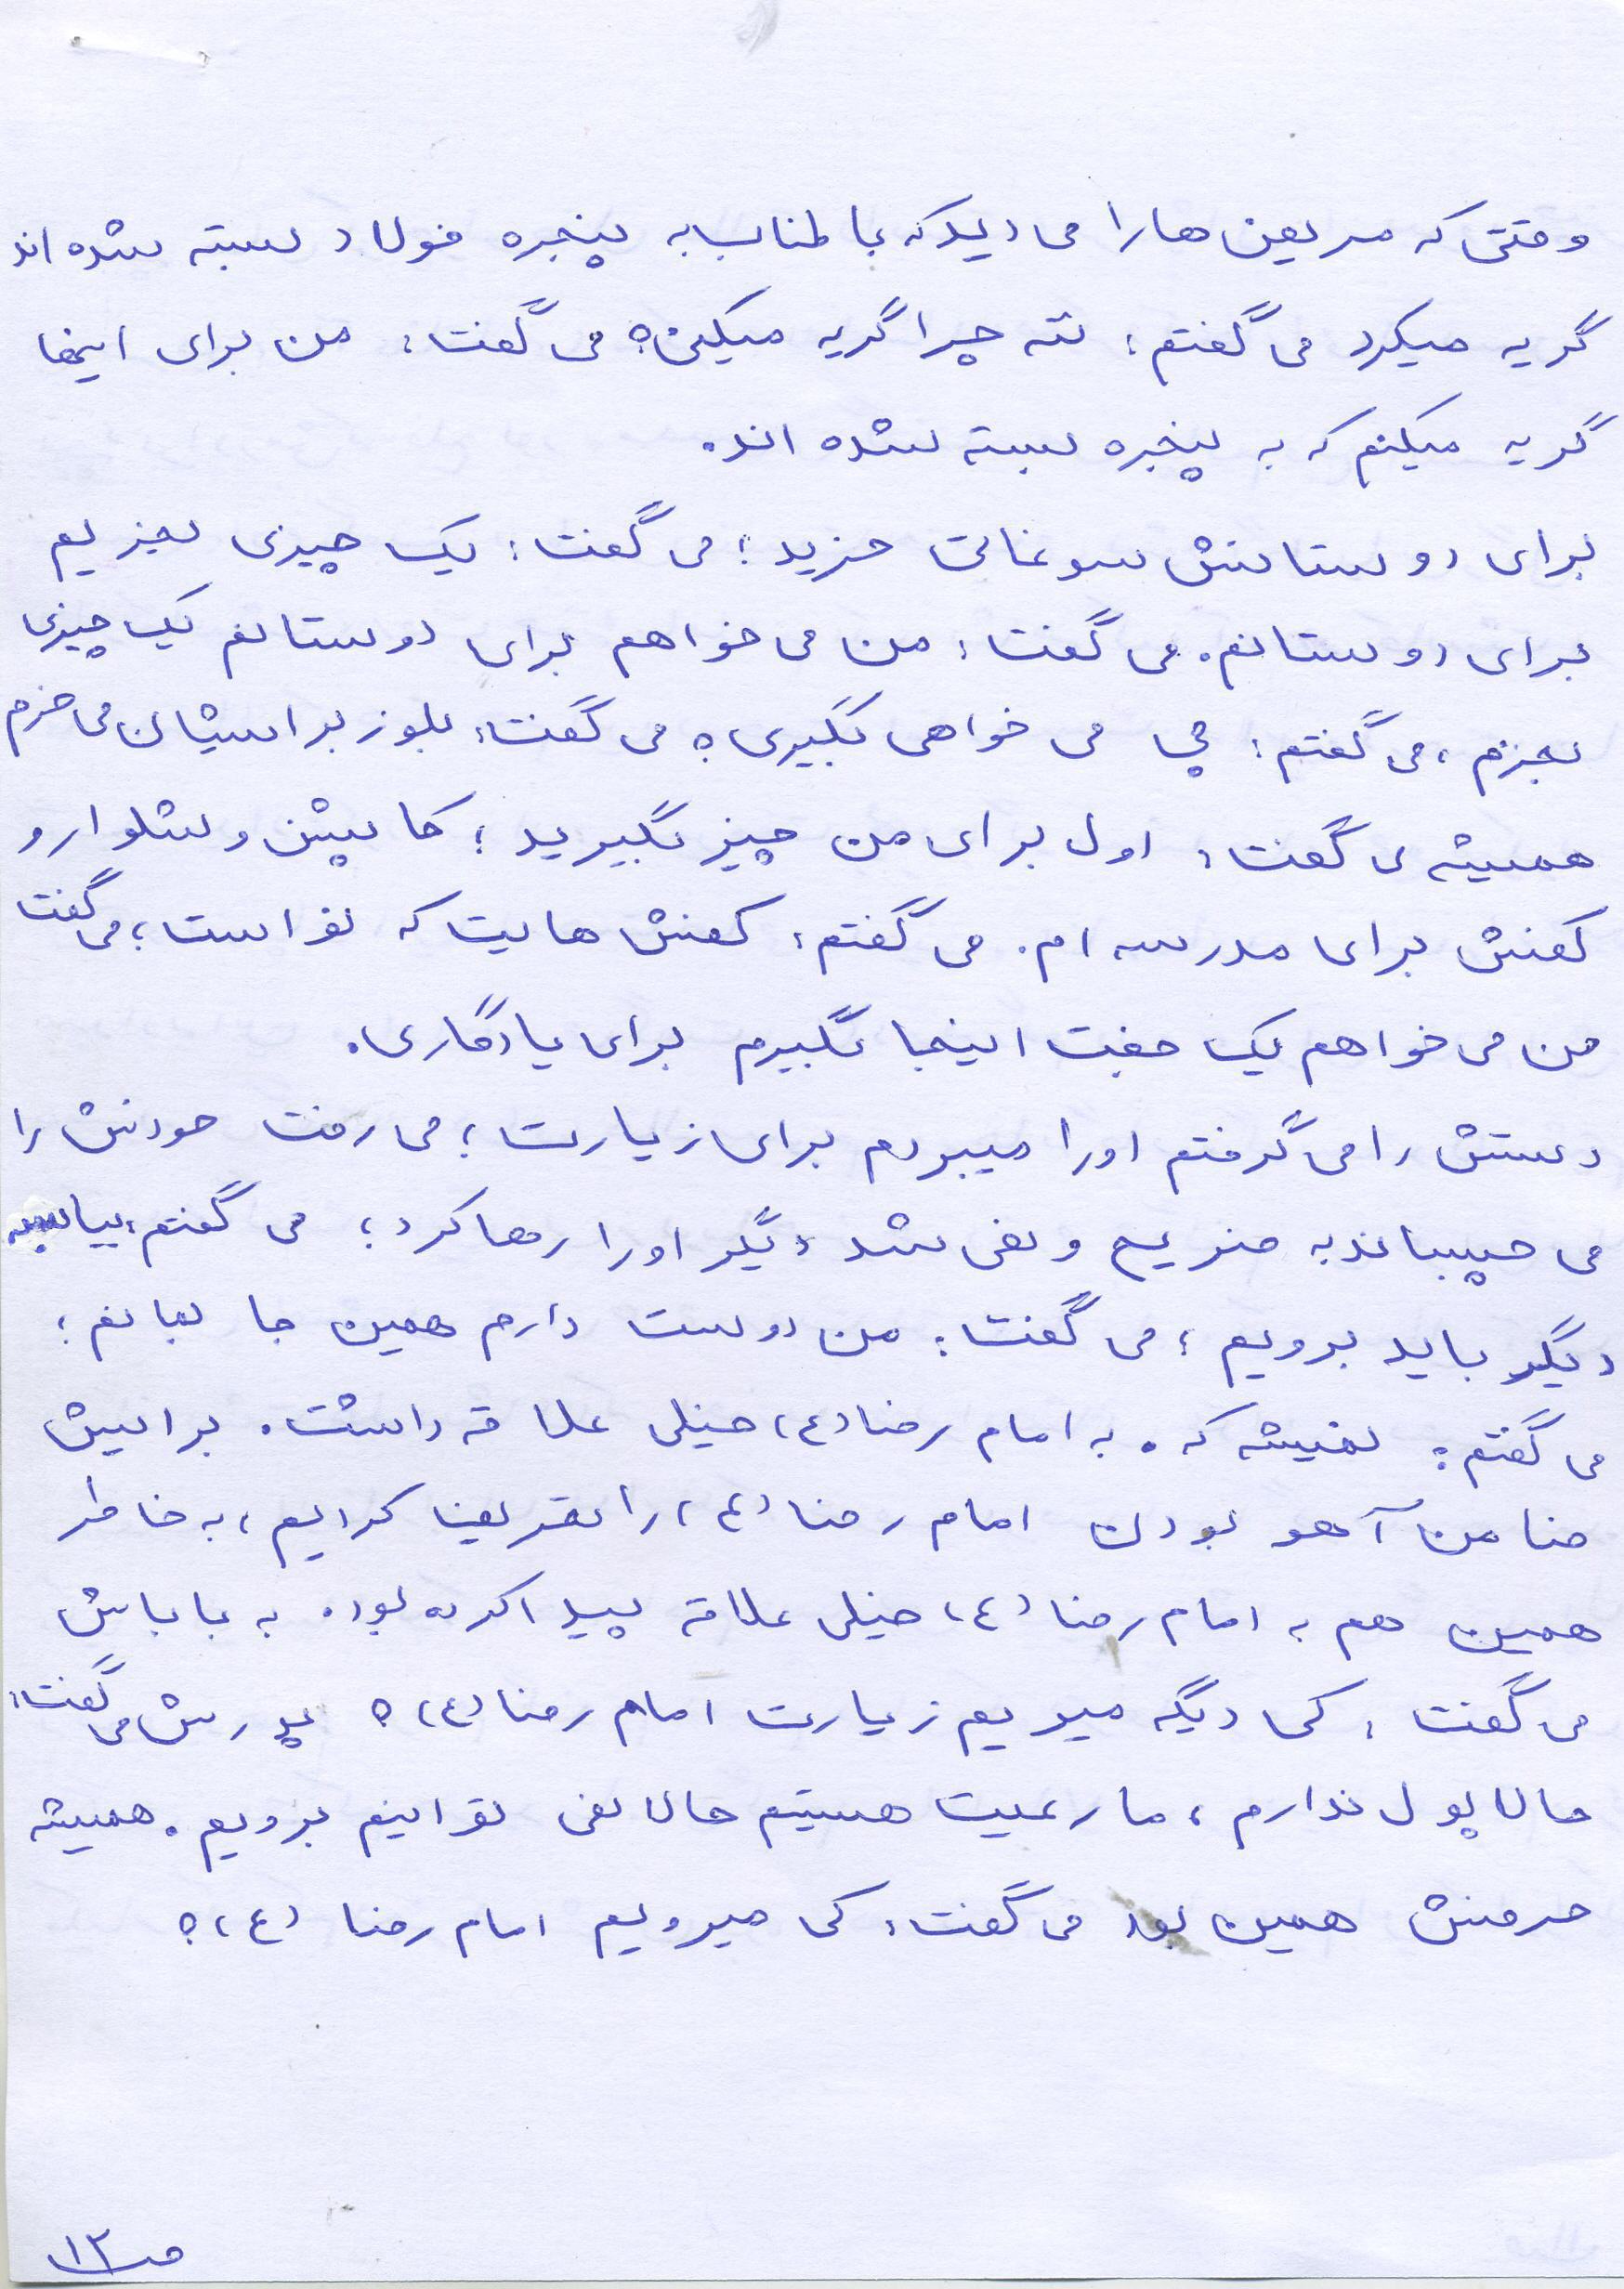 وقتی که مریض ها را می دید که با طناب به پنجره فولاد بسته شده اند
گریه میکرد می گفتم: ننه چرا گریه میکنی؟ می گفت: من برای اینها
گریه میکنم که به پنجره بسته شده اند.
برای دوستانش سوغاتی خرید؛ می گفت: یک چیزی بخریم
برای دوستانم. می گفت: من می خواهم برای دوستانم یک چیزی
بخرم، می گفتم: چی می خواهی بگیری؟ می گفت: بلوز برایشان می خرم
همیشه ی گفت: اول برای من چیز بگیرید؛ کاپشن و شلوار و
کفش برای مدرسه ام. می گفتم: کفش هایت که نو است؛ می گفت
من می خواهم یک جفت اینجا بگیرم برای یادگاری.
دستش را می گرفتم او را میبردم برای زیارت؛ می رفت خودش را
می چسباند به ضریح و نمی شد دیگر او را رها کرد؛ می گفتم: بیا
دیگر باید برویم؛ می گفت: من دوست دارم همین جا بمانم؛
می گفتم: نمیشه که. به امام رضا (ع) خیلی علاقه داشت. برایش
ضامن آهو بودن امام رضا (ع) را تعریف کردیم، به خاطر
همین هم به امام رضا (ع) خیلی علاقه پیدا کرده بود. به باباش
می گفت: کی دیگه میریم زیارت امام رضا (ع)؟ پدرش می گفت:
حالا پول ندارم، ما رعیت هستیم حالا نمی توانیم برویم. همیشه
حرفش همین بود می گفت: کی میرویم امام رضا (ع)؟
ص۱۲